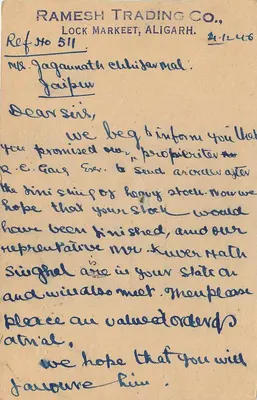 RAMESH TRADING CO.,
LOCK MARKEET, ALIGARH.
Ref. No 511 4.12.46
M/S. Jagannath ChhiJarmal.
Jaipur
Dear sirs,
We beg to inform you that
you promised our propriter
R. C. Garg Esr. to send a order after
the finishing of heavy stock. Now we
hope that your stock would
have been finished, amd our
reprentative Mr. Kuver Nath
Singhal are in your state on
and will also meet. Then please
pleace an valued order as
a trial.
We hope that you will
favoure him.